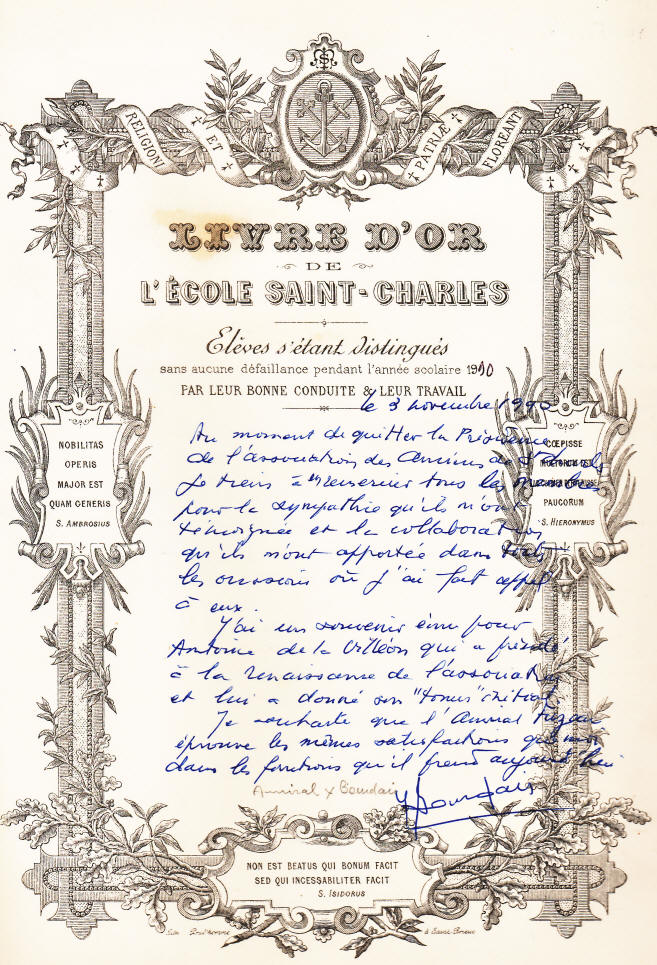 RELIGIONI ET PATRIÆ FLOREANT
LIVRE D'OR
DE
L'ÉCOLE SAINT-CHARLES
Elèves s'étant distingués
sans aucune défaillance pendant l'année scolaire 1990
PAR LEUR BONNE CONDUITE & LEUR TRAVAIL
le 3 novembre 1990
NOBILITAS
OPERIS
MAJOR EST
QUAM GENERIS
S. AMBROSIUS
CŒPISSE
MULTORUM EST
PAUCORUM
S. HIERONYMUS
Au moment de quitter la Présidence
de l'association des Anciens de St Charles
Je tiens à remercier tous les membres
pour la sympathie qu'ils m'ont
témoignée et la collaboration
qu'ils m'ont apportée dans toutes
les occasions où j'ai fait appel
à eux.
J'ai un souvenir ému pour
Antoine de la Villéon qui a présidé
à la renaissance de l'association
et lui a donné son "tonus" initial
Je souhaite que l'Amiral
éprouve les mêmes satisfactions que moi
dans les fonctions qu'il prend aujourd'hui
Amiral Y Bourdais
Y Bourdais
NON EST BEATUS QUI BONUM FACIT
SED QUI INCESSABILITER FACIT
S. ISIDORUS
Lith. Prud'homme à Saint-Brieuc